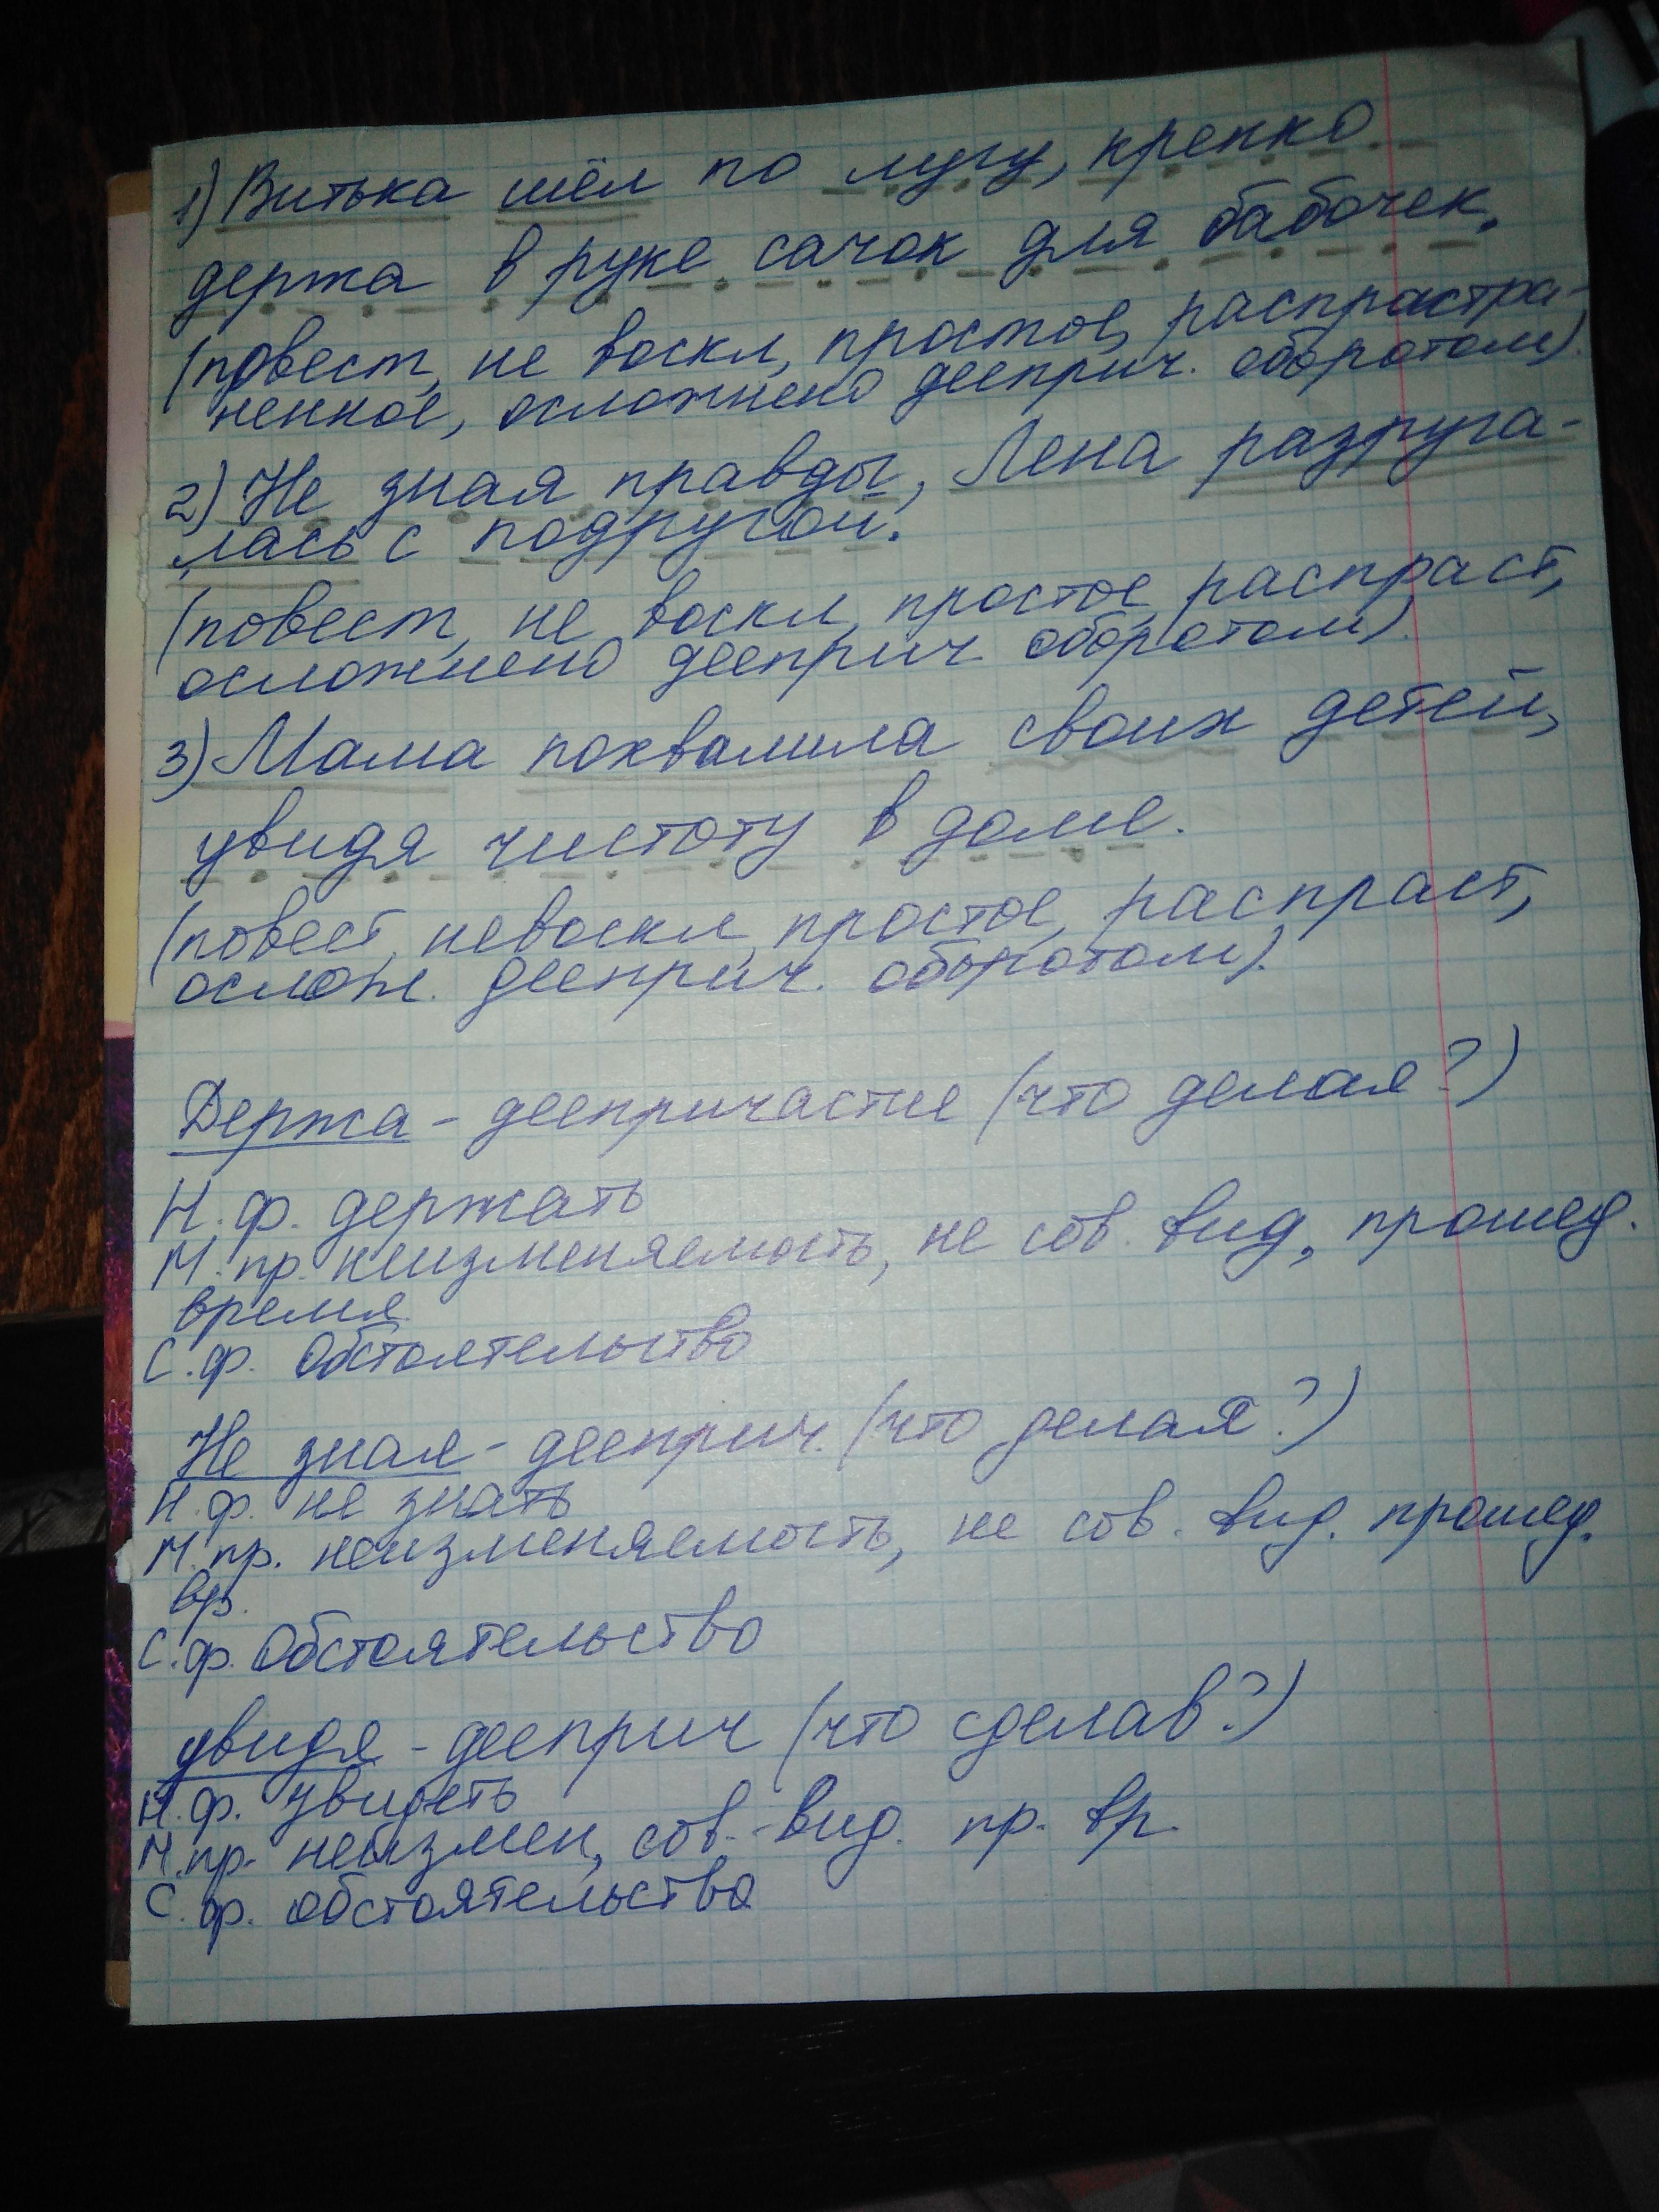 1) Витька шёл по лугу, крепко
держа в руке сачок для бабочек.
(повест, не воскл, простое, распрастра-
ненное, осложнено дееприч. оборотом).
2) Не зная правды, Лена разруга-
лась с подругой.
(повест, не воскл, простое, распраст,
осложнено дееприч оборотом).
3) Мама похвалила своих детей,
увидя чистоту в доме.
(повест, невоскл, простое, распраст,
ослож. дееприч. оборотом).
Держа - деепричастие (что делая?)
Н.ф. держать
М.пр. неизменяемость, не сов. вид, прошед.
время
С.ф. Обстоятельство
Не зная - дееприч. (что делая?)
Н.ф. не знать
М.пр. неизменяемость, не сов. вид. прошед.
вр.
С.ф. Обстоятельство
увидя - дееприч (что сделав?)
Н.ф. увидеть
М.пр. неизмен, сов. вид. пр. вр.
С.ф. обстоятельство